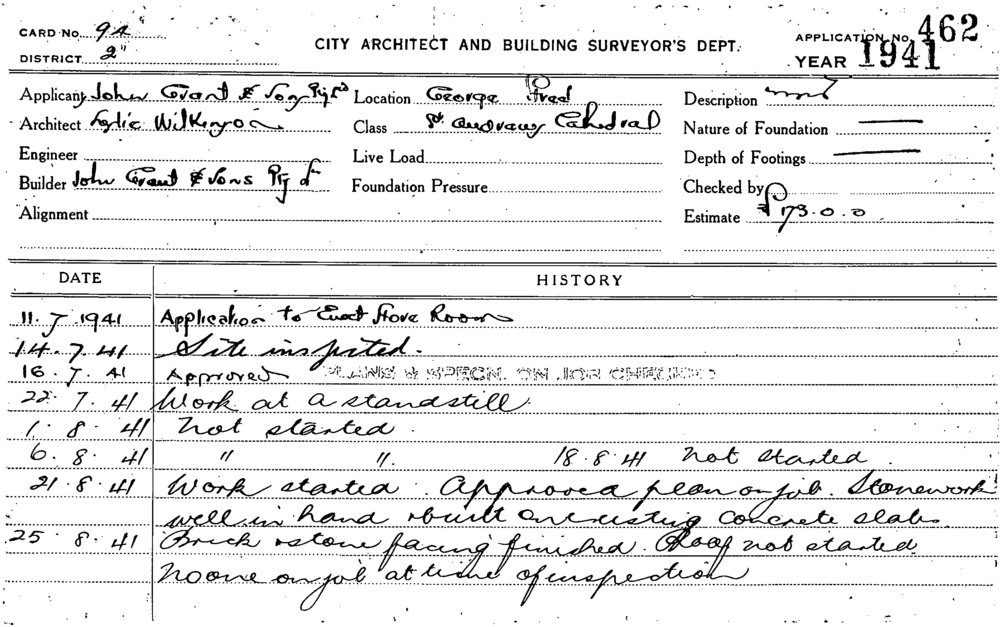 CARD No. 94
DISTRICT 2
CITY ARCHITECT AND BUILDING SURVEYOR'S DEPT.
APPLICATION No. 462
YEAR 1941
Applicant John Grant & Sons Pty Ld
Location George
Description
Architect Leslie Wilkinson
Class St Andrews Cathedral
Nature of Foundation —
Engineer
Live Load
Depth of Footings —
Builder John Grant & Sons Pty Ld
Foundation Pressure
Checked by
Alignment
Estimate £173.0.0
DATE HISTORY
11.7.1941 Application to Erect Store Room
14.7.41 Site inspected.
16.7.41 Approved PLANS & SPECN. ON JOB CHECKED
22.7.41 Work at a standstill.
1.8.41 Not started.
6.8.41 " ". 18.8.41 Not started.
21.8.41 Work started. Approved plan on job. Stonework
well in hand & built on existing concrete slab.
25.8.41 Brick & stone facing finished. Roof not started.
No one on job at time of inspection